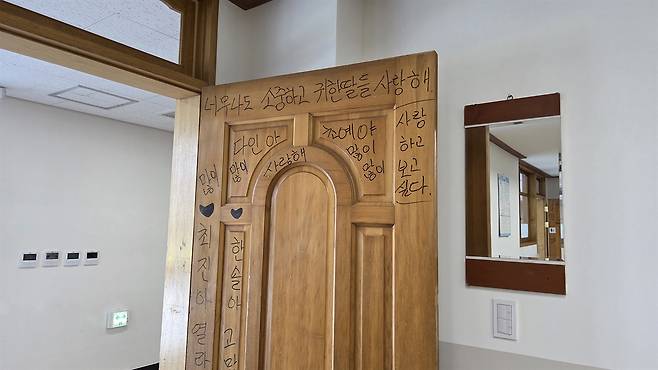 너무나도 소중하고 귀한딸들 사랑해
다인아
많이
많이
사랑해
최예야
많이
많이
사랑
하고
보고
싶다.
최진아
열라
한슬아
고마